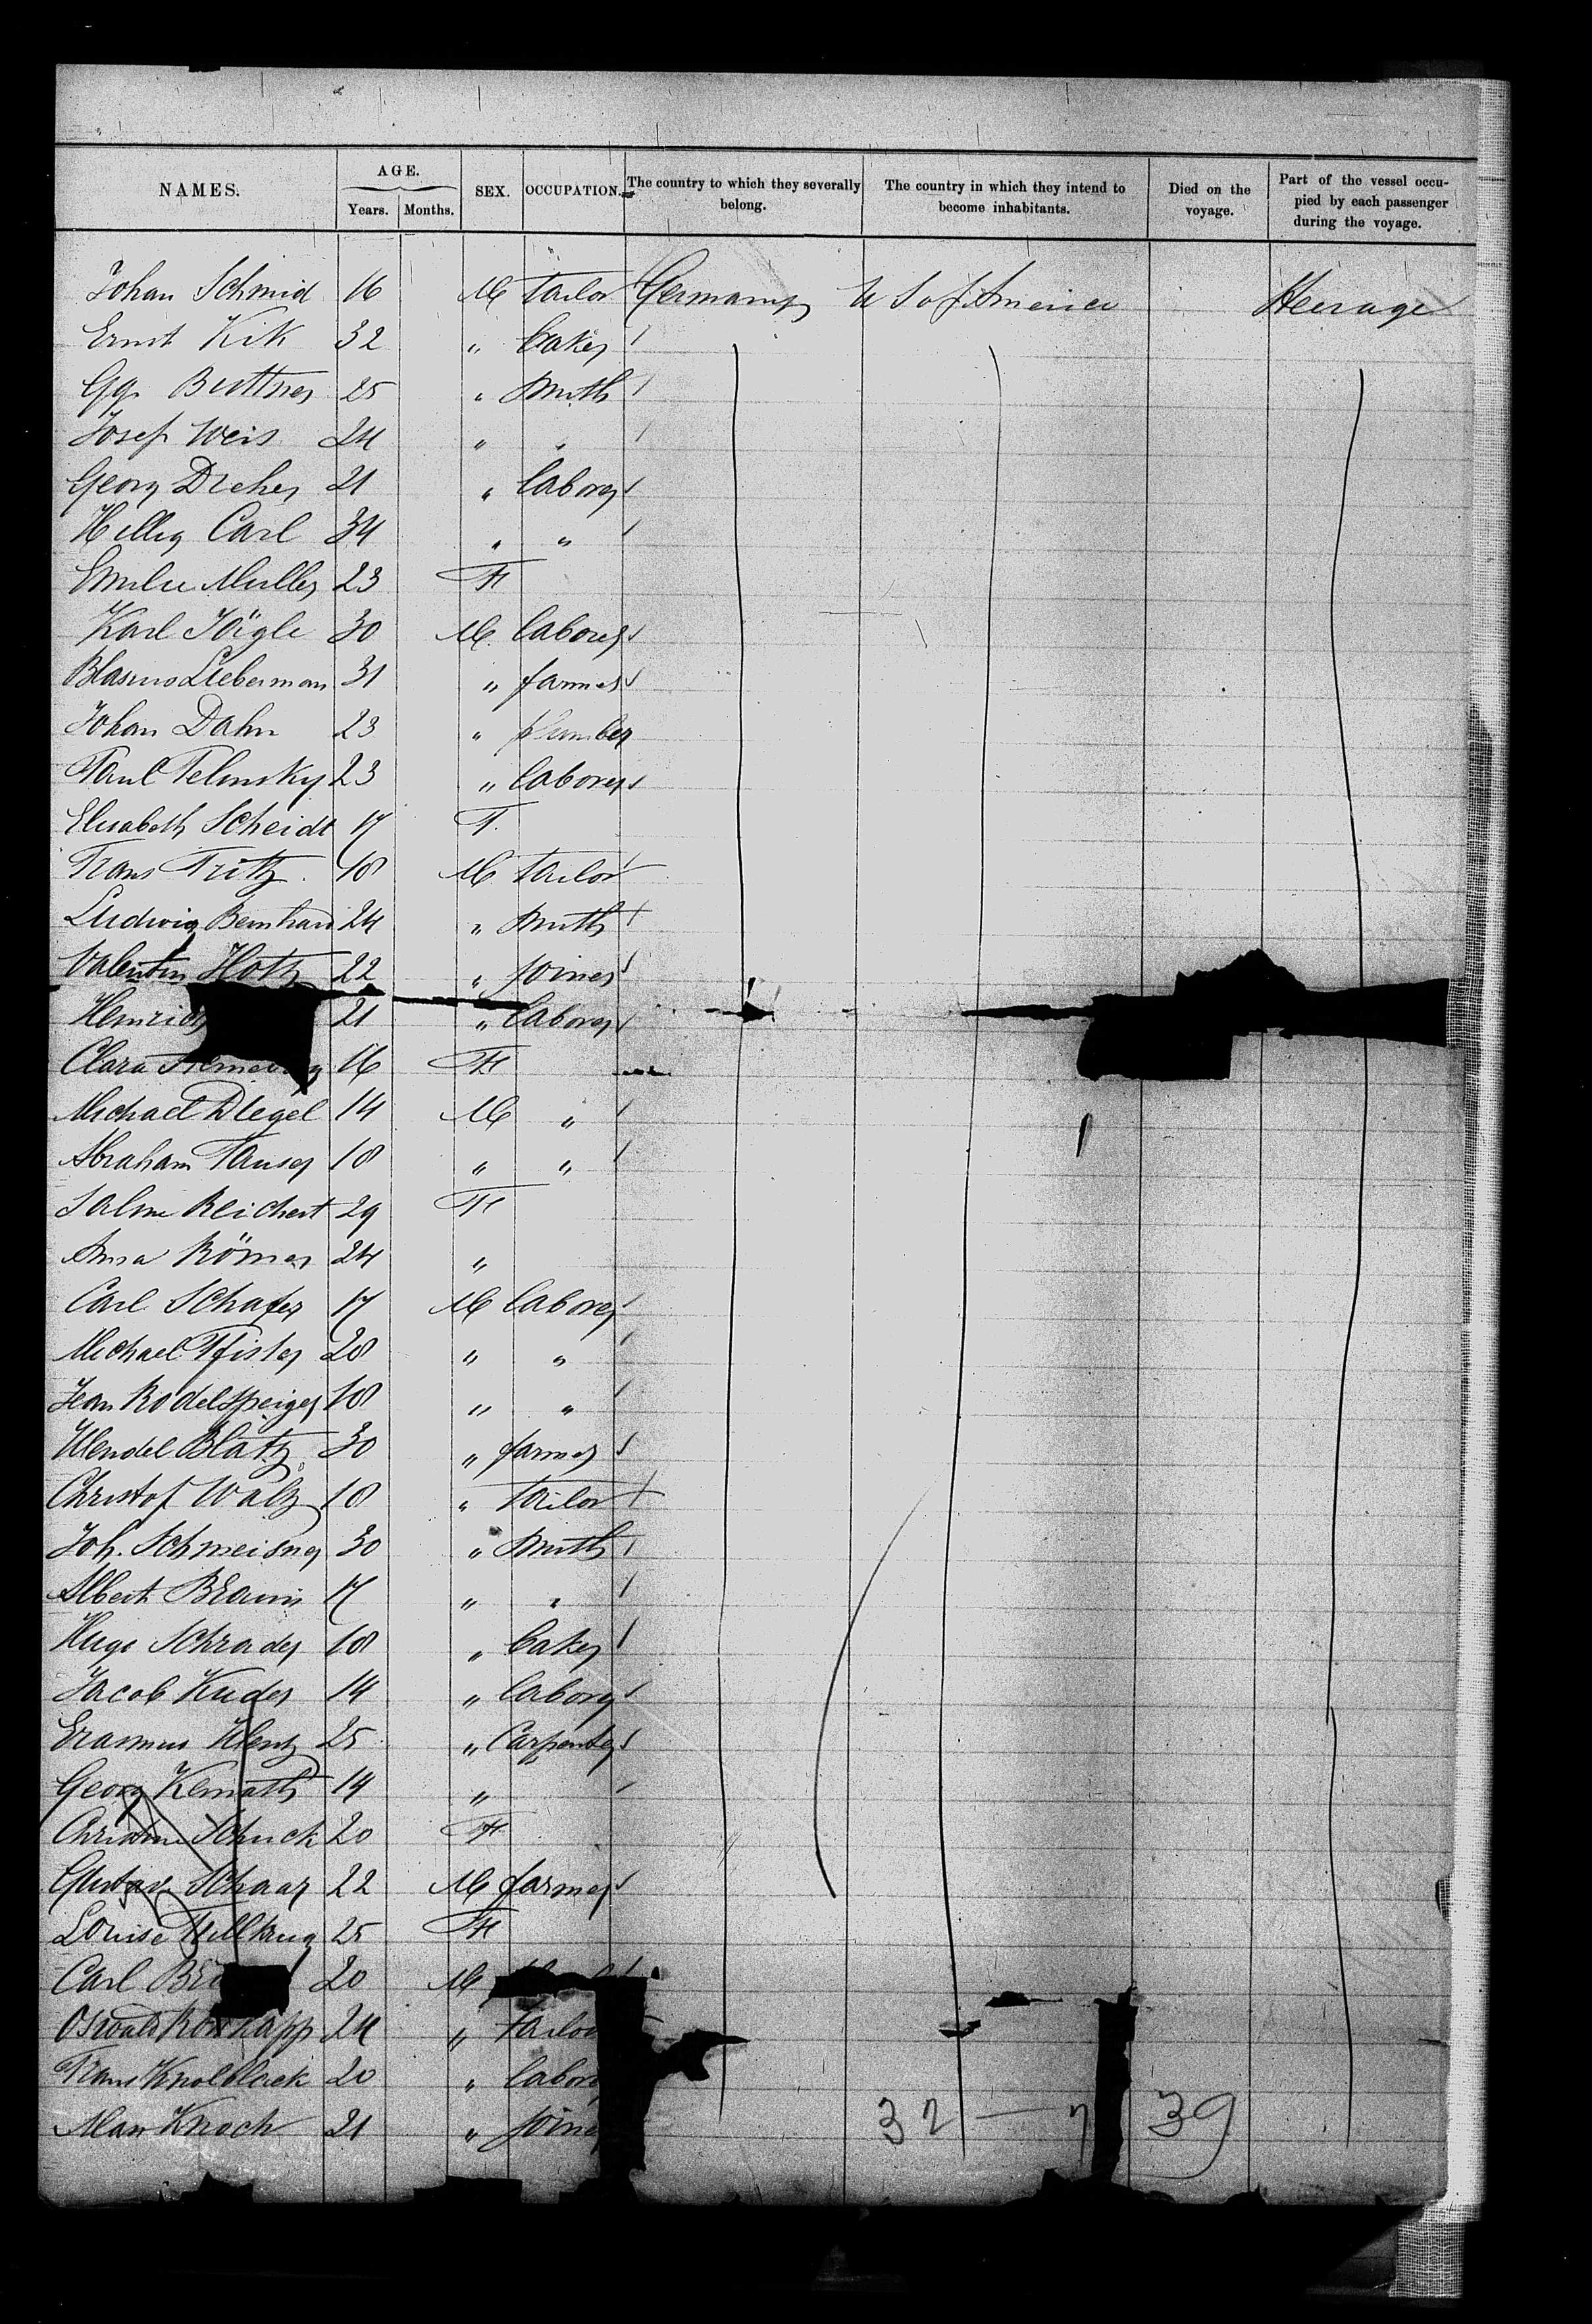 NAMES. AGE. Years. Months. SEX. OCCUPATION. The country to which they severally belong. The country in which they intend to become inhabitants. Died on the voyage. Part of the vessel occupied by each passenger during the voyage.
Johan Schmid 16 M tailor Germany U S of America Steerage
Ernst Kik 32 " baker
Gg. Buttner 25 " smith
Josef Weis 24 " "
Georg Dreher 21 " laborer
Hellig Carl 34 " "
Emilie Muller 23 F
Karl Jöigle 30 M laborer
Blasius Lieberman 31 " farmer
Johan Dahn 23 " plumber
Paul Telinsky 23 " laborer
Elisabeth Scheidt 17 F.
Frans Fritz. 18 M tailor
Ludwig Bernhard 24 " smith
Valentin Hotz 22 " joiner
Heinrich 21 " laborer
Clara 16 F
Michael Diegel 14 M "
Abraham Tauser 18 " "
Salme Reichert 29 F
Anna Römer 24 "
Carl Schafer 17 M laborer
Michael Pfister 28 " "
Jean Rodelspeiger 18 " "
Wendel Blätz 30 " farmer
Christof Walz 18 " tailor
Joh. Schmeisner 30 " smith
Albert Braun 17 " "
Hugo Schrader 18 " baker
Jacob Kuder 14 " laborer
Erasmus Klenz 25 " Carpenter
Georg Kemath 14 "
Christine Schuck 20 F
Gustav Schaar 22 M farmer
Louise Tellkrug 25 F
Carl 20 M
Oswald 24 " tailor
Frans Knoblack 20 " labor
Max Knoch 21 " joine
32 — 7 39